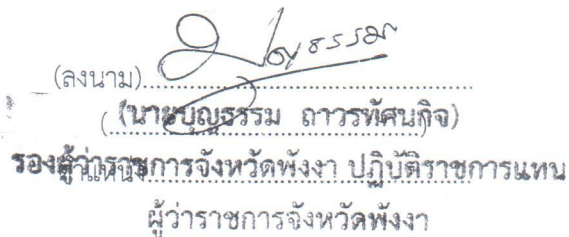 (ลงนาม)........บุญธรรม........
(นายบุญธรรม ถาวรทัศนกิจ)
ตำแหน่ง
รองผู้ว่าราชการจังหวัดพังงา ปฏิบัติราชการแทน
ผู้ว่าราชการจังหวัดพังงา